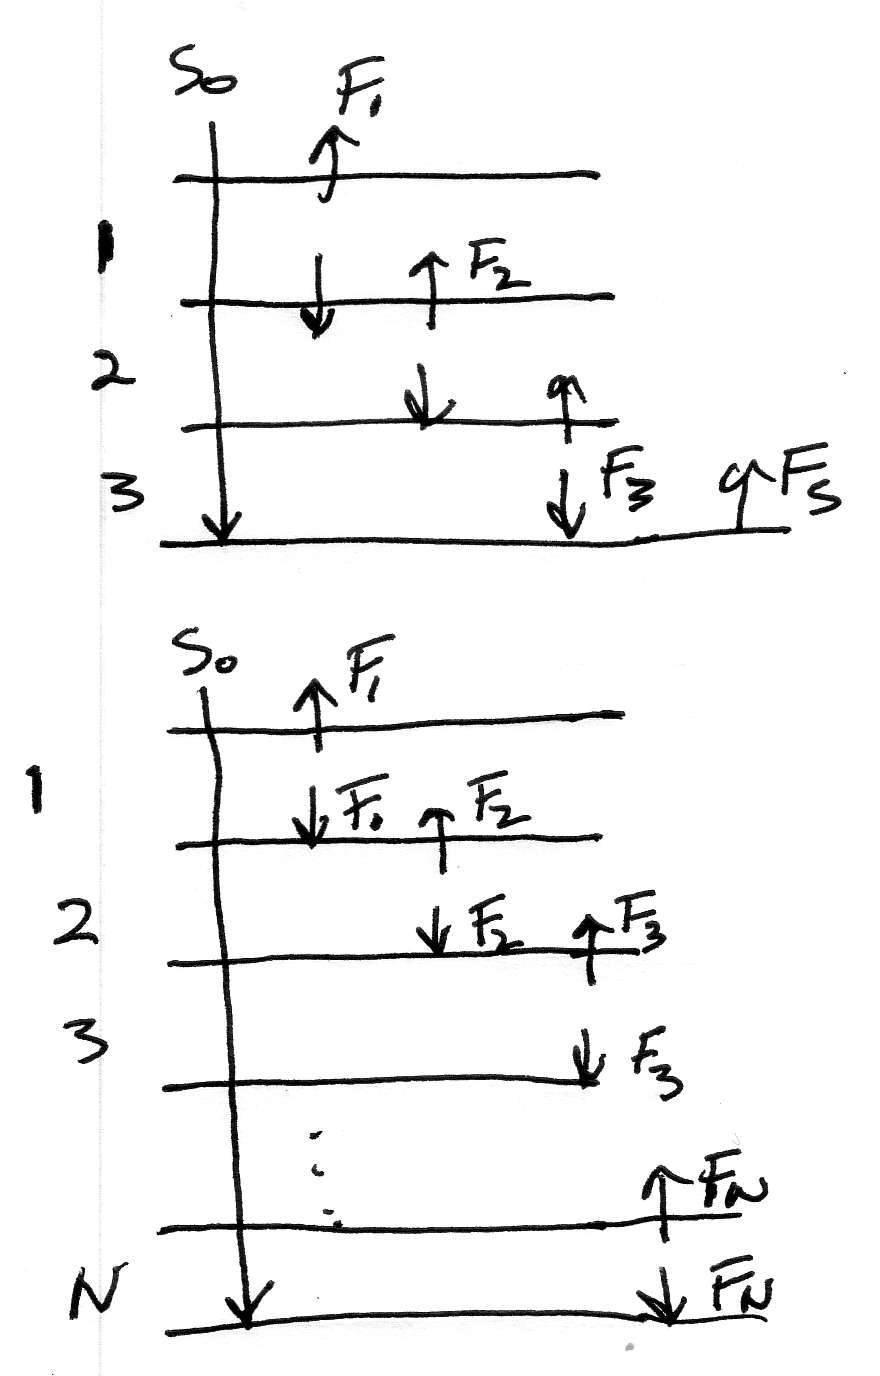 S₀
F₁
1
F₂
2
3
F₃
Fₛ
S₀
F₁
1
F₁
F₂
2
F₂
F₃
3
F₃
F_N
N
F_N